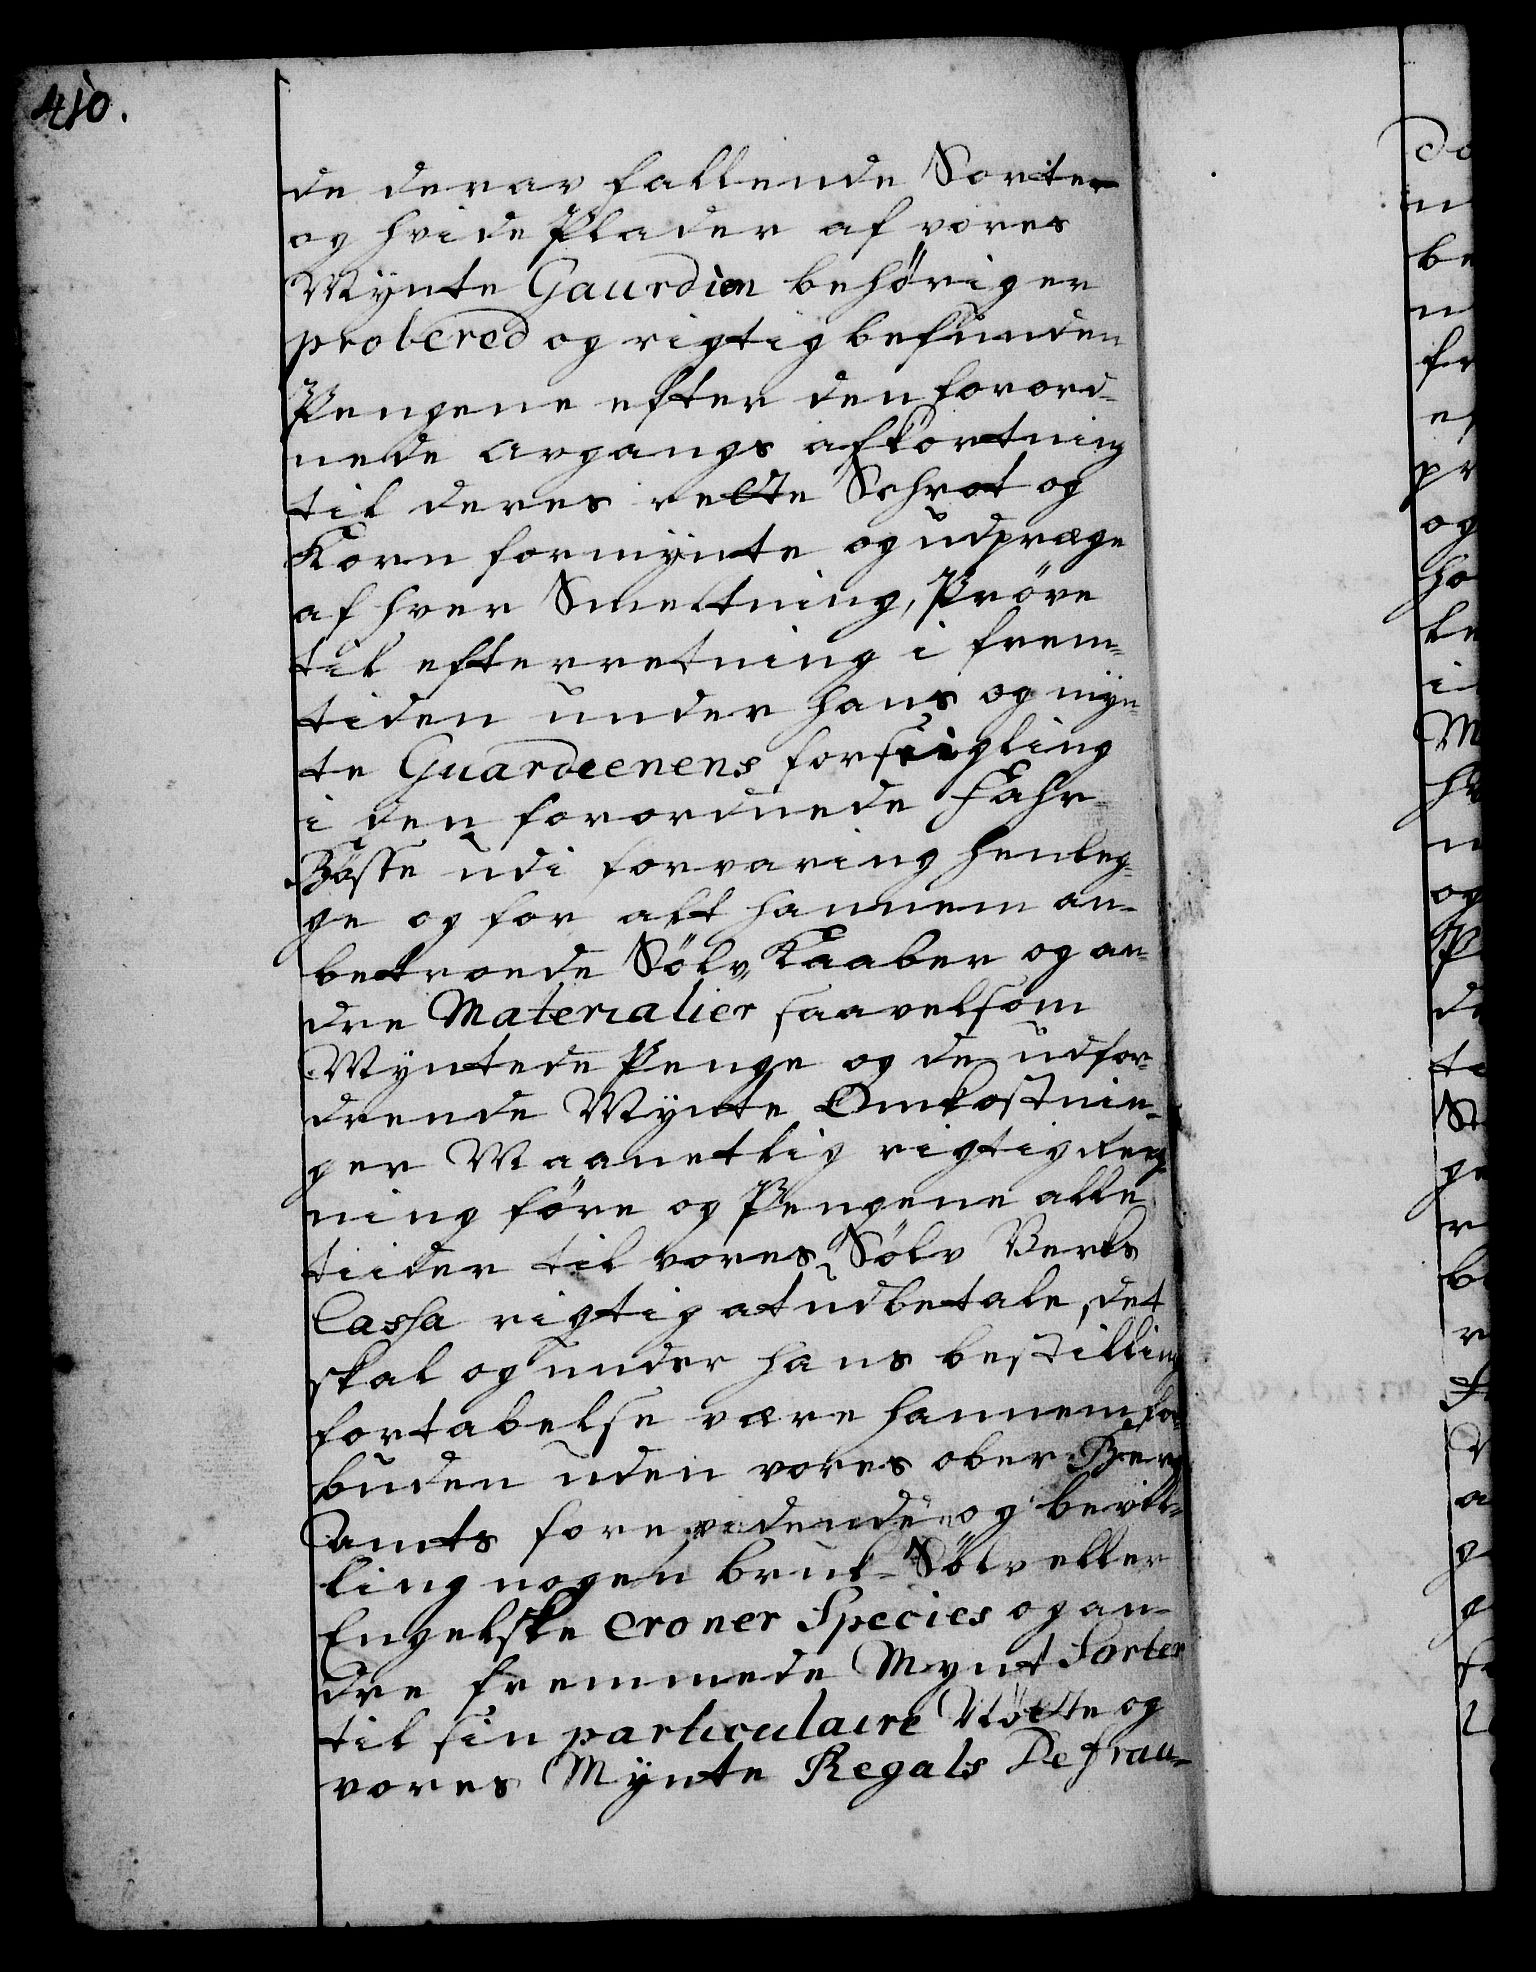 410.
de derav fallende Sorter
og hvide Plader af vores
Mynte Gaurdien behöriger
probered og rigtig befunden
Pengene efter den forord-
nede avgangs afkortning
til deres rette Schrot og
Korn formynte og udpræge
af hver Smeltning, Pröve
til efterretning i frem-
tiden under hans og myn-
te Guardeenens forseigling
i den forordnede Fahr-
Bösse udi forvaring henleg-
ge og for alt hannem an-
betroede Sölv, Kaaber og an-
dre Materialier saavelsom
Myntede Penge og de udfor-
drende Mynte Omkostnin-
ger Maanetlig rigtig Reg-
ning före og Pengene alle
tiider til vores Sölv Verks
Cassa rigtig at udbetale, det
skal og under hans bestilling
fortabelse være hannem for-
buden uden vores ober Berg
Amts forevidende og bevil-
ling nogen bruk-Sölv eller
Engelske Croner Species og an-
dre fremmede Mynt Sorter
til sin particulaire Nötte og
vores Mynte Regals Defrau-